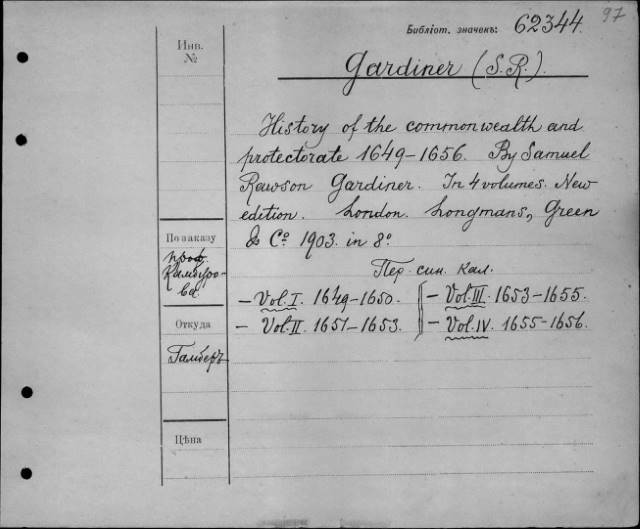 97
Библіот. значекъ: 62344.
Инв.
№
Gardiner (S.R.).
History of the commonwealth and
protectorate 1649-1656. By Samuel
Rawson Gardiner. In 4 volumes. New
edition. London. Longmans, Green
& Cº 1903. in 8º.
По заказу
проф.
Пер. син. кал.
– Vol. I. 1649-1650.
– Vol. II. 1651-1653.
– Vol. III. 1653-1655.
– Vol. IV. 1655-1656.
Откуда
Гамберъ
Цѣна